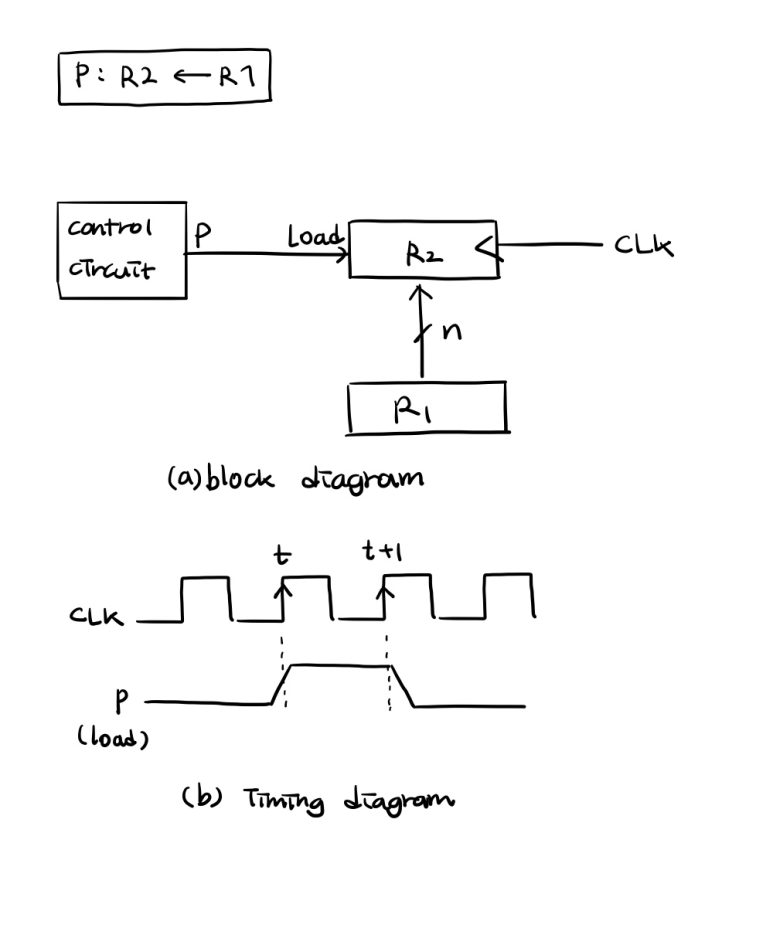 P: R2 ← R1
control
circuit
P
Load
R2
CLK
n
R1
(a) block diagram
t
t+1
CLK
P
(load)
(b) Timing diagram